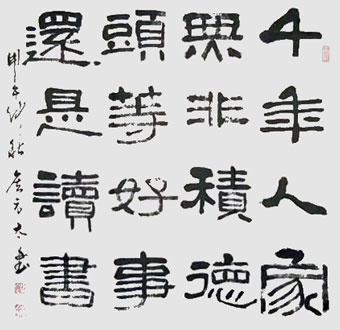 千年人家
無非積德
頭等好事
還是讀書
甲午